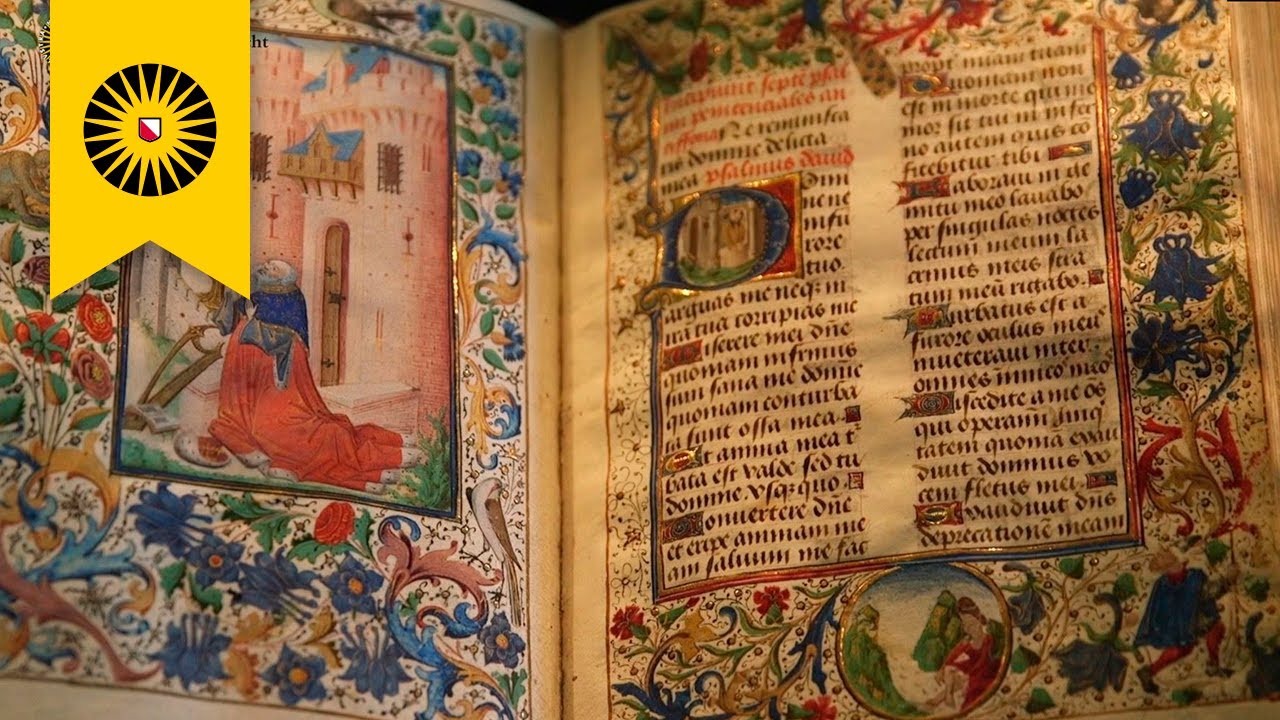 ht
Incipiunt septē psal
mi penitenciales an
tiffona Ne reminisca
ris domine delicta
mea psalmus dauid
Domi
ne ne
in fu
rore
tuo
arguas me neq; in
ira tua corripias me
Miserere mei dn̄e
quoniam infirmus
sum sana me domine
quoniam conturba
ta sunt ossa mea
Et anima mea t
bata est valde sed tu
domine vsq; quo
Conuertere dn̄e
et eripe animam me
am saluum me fac
propt̄ miām tuam
Quoniam non
est in morte qui me
mor sit tui in infer
no autem quis cō
fitebitur tibi
Laboraui in ge
mitu meo lauabo
per singulas noctes
lectum meum la
crimis meis stra
tum meū rigabo
Turbatus est a
furore oculus meus
inueteraui inter
omnes inimicos meo
Discedite a me os
qui operam̄ iniq
tatem quoniā exau
diuit dominus vo
cem fletus mei
Exaudiuit dn̄s
deprecationē meam